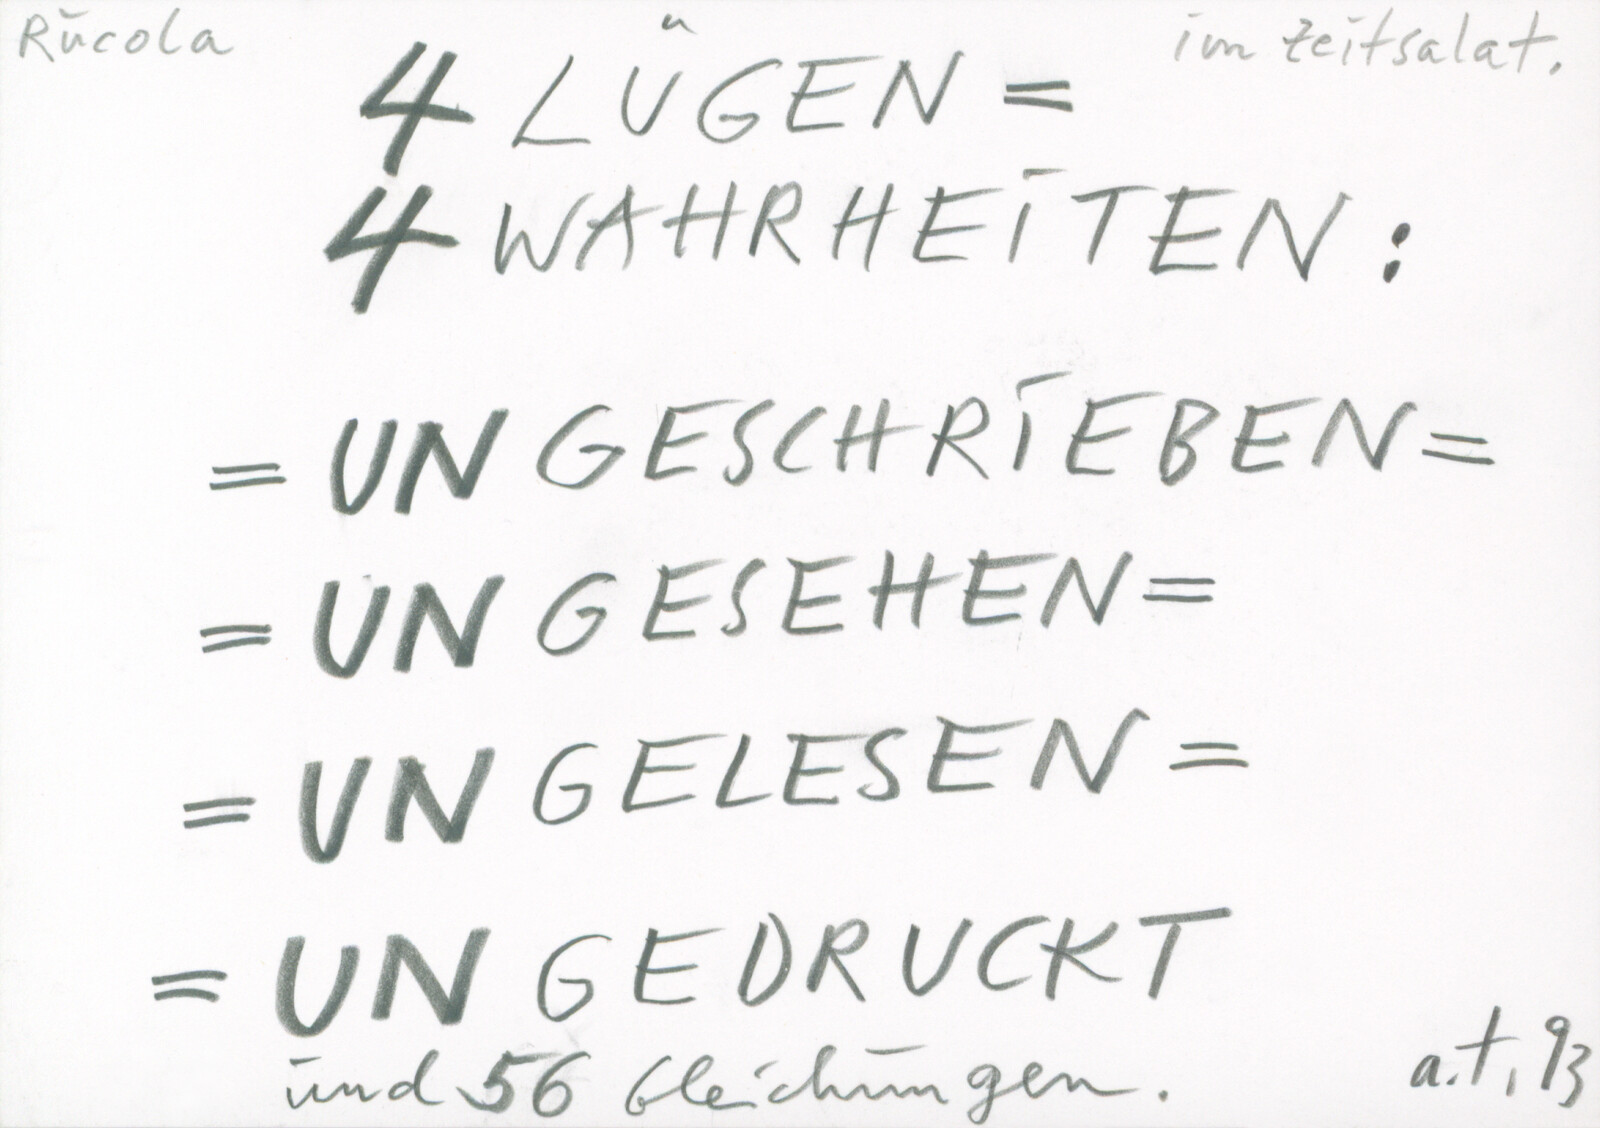 Rucola
im Zeitsalat.
4 LÜGEN =
4 WAHRHEITEN :
= UNGESCHRIEBEN =
= UNGESEHEN =
= UNGELESEN =
= UNGEDRUCKT
und 56 Gleichungen.
a.t, 93